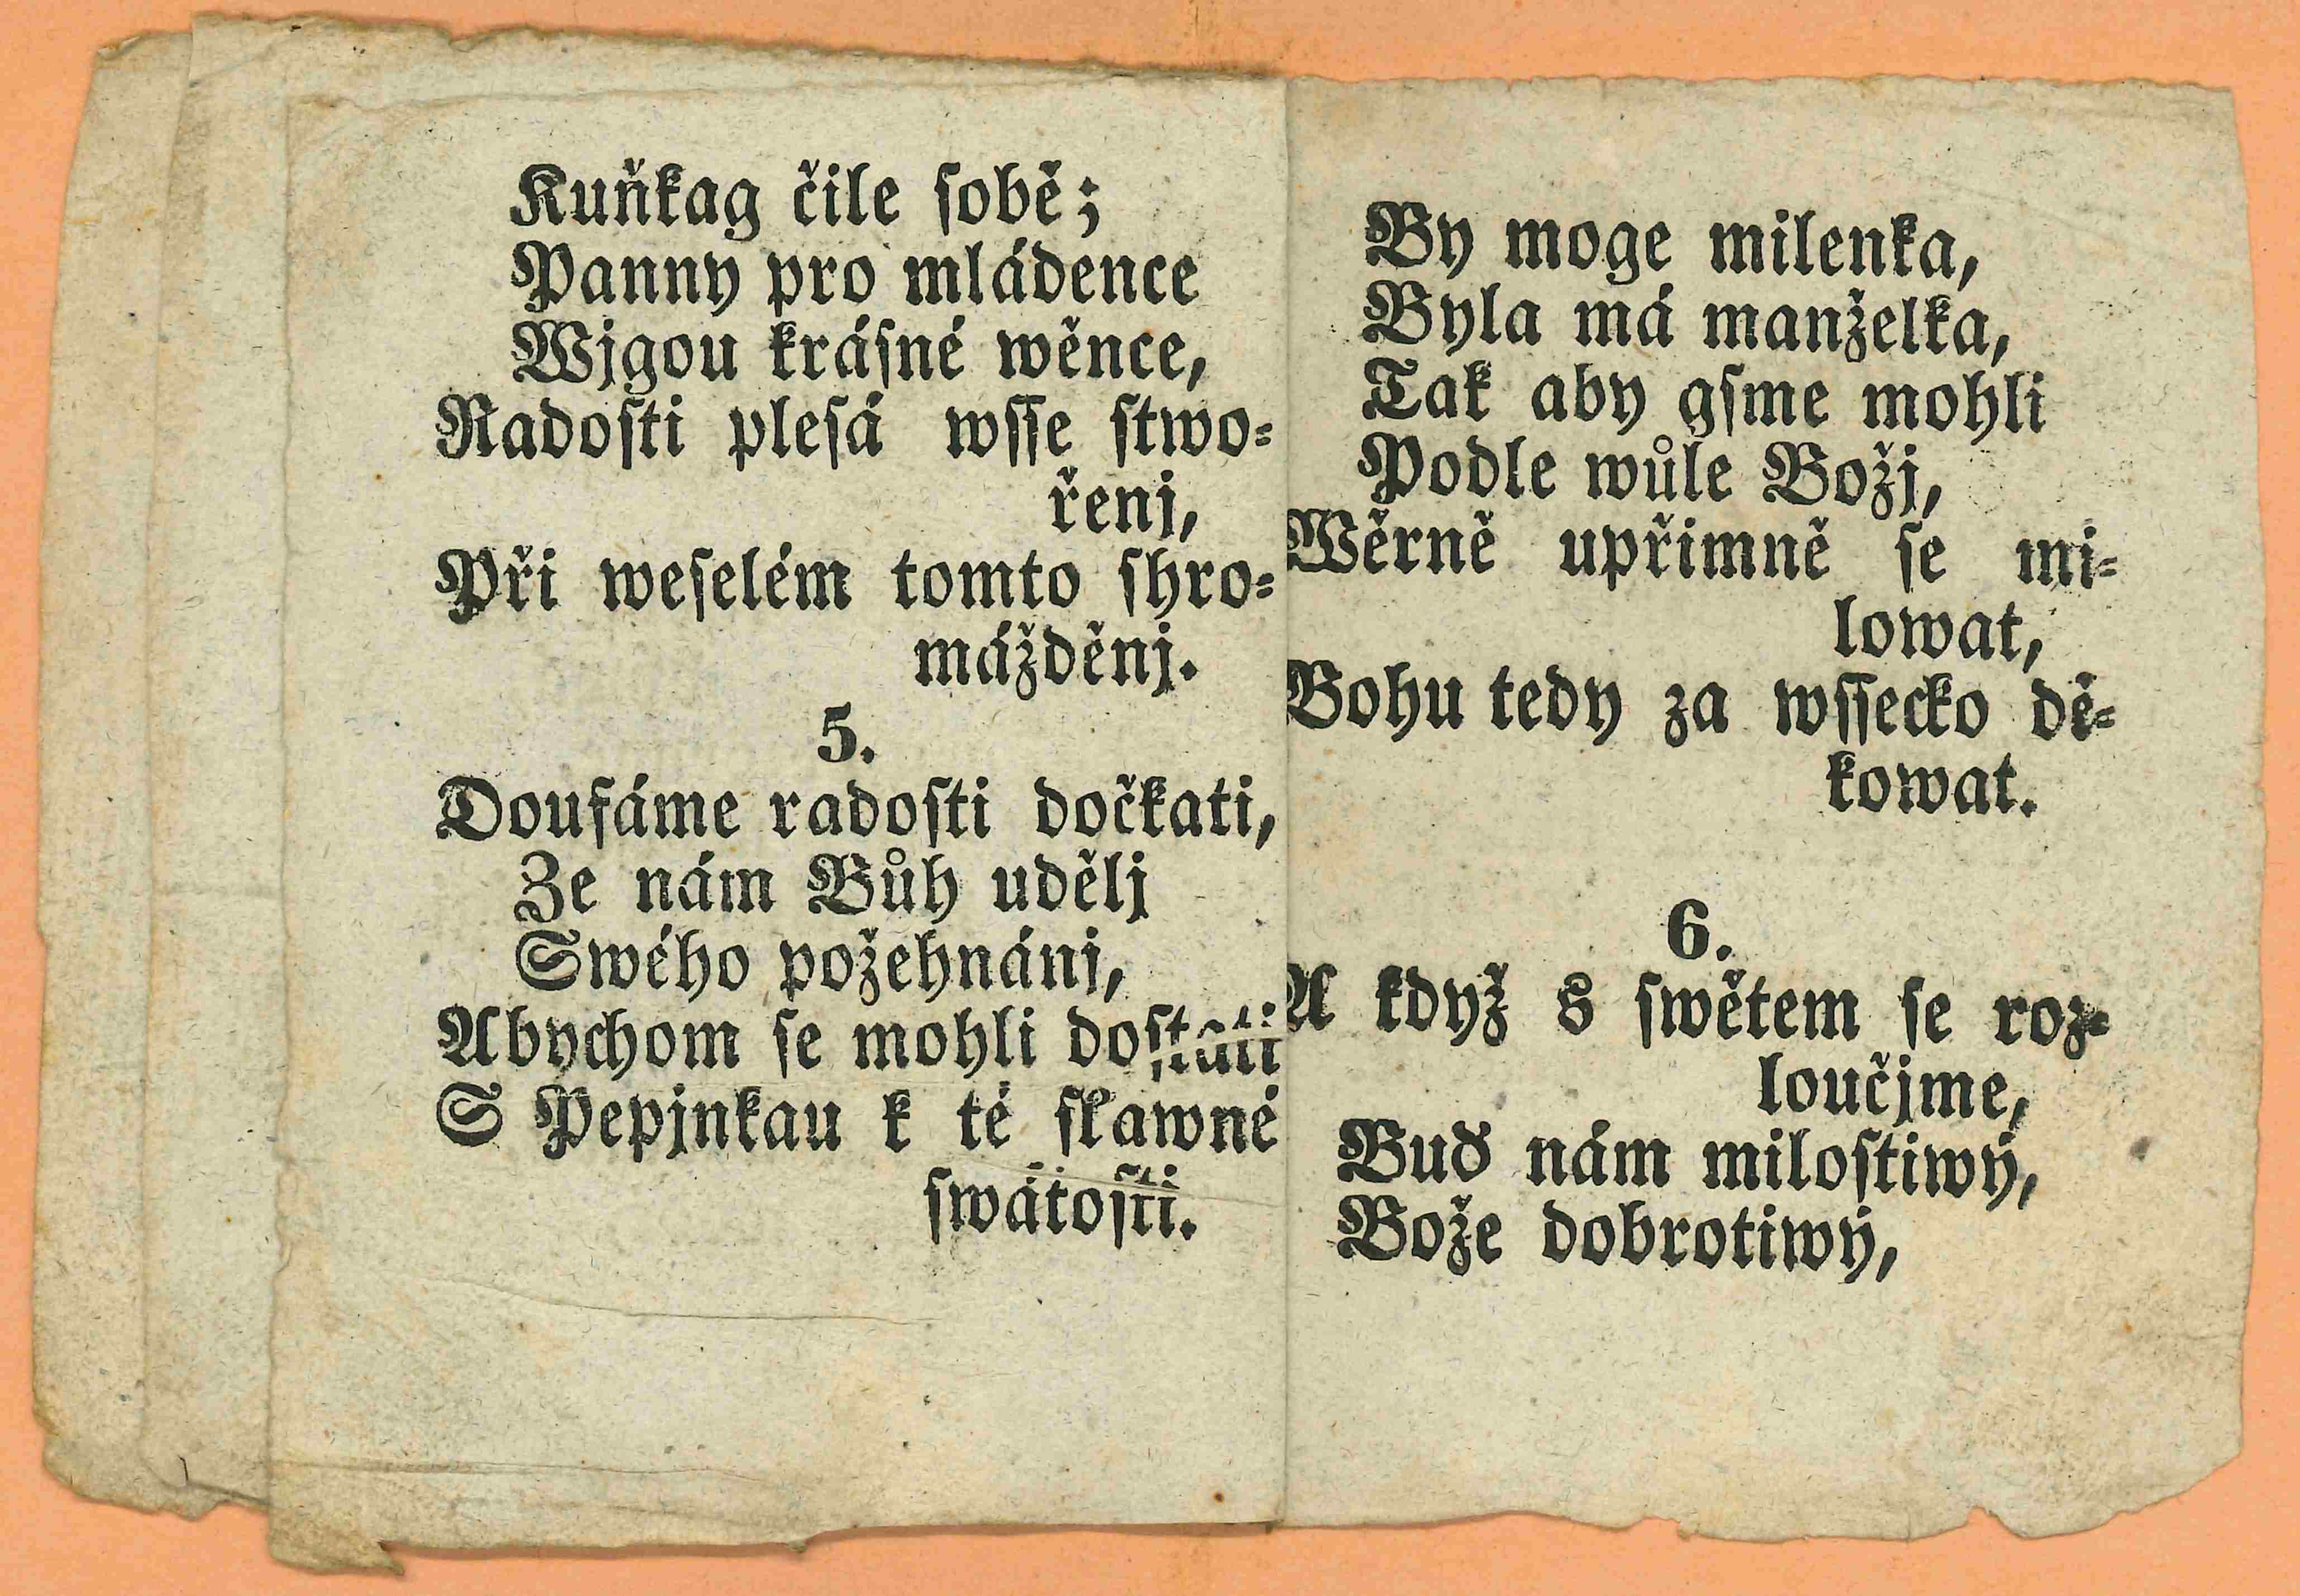 Kuňkag čile sobě;
Panny pro mládence
Wjgou krásné wěnce,
Radosti plesá wsse stwo=
řenj,
Při weselém tomto shro=
mážděnj.
5.
Doufáme radosti dočkati,
Ze nám Bůh udělj
Swého požehnánj,
Abychom se mohli dostati
S Pepjnkau k té slawné
swátosti.
By moge milenka,
Byla má manželka,
Tak aby gsme mohli
Podle wůle Božj,
Wěrně upřimně se mi=
lowat,
Bohu tedy za wssecko dě=
kowat.
6.
A když s swětem se roz=
loučjme,
Buď nám milostiwý,
Bože dobrotiwý,